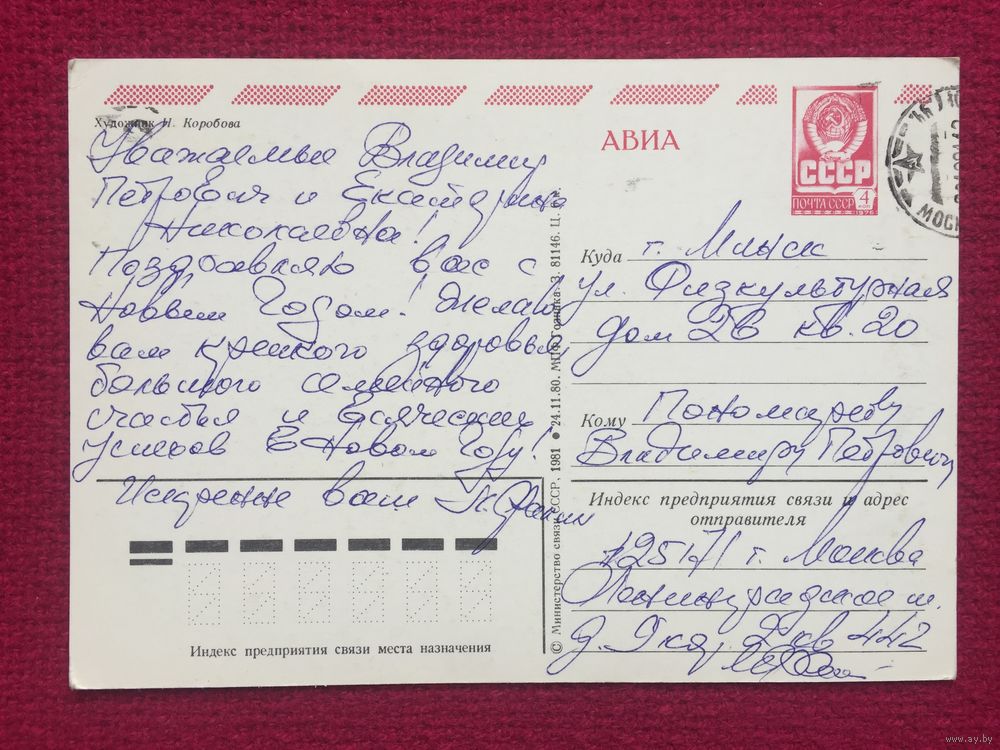 Художник И. Коробова
АВИА
СССР
ПОЧТА СССР 4 коп
1976
МОСК
Уважаемые Владимир
Петрович и Екатерина
Николаевна!
Поздравляю вас с
Новым Годом! Желаю
вам крепкого здоровья,
большого семейного
счастья и всяческих
успехов в Новом Году!
Искренне ваш
Куда г.
ул. Физкультурная
дом 2в кв. 20
Кому Пономареву
Владимиру Петровичу
Индекс предприятия связи и адрес
отправителя
125171 г. Москва
Ленинградское ш.
д. кв 442
Индекс предприятия связи места назначения
© Министерство связи СССР, 1981 ● 24.11.80. МПФ Гознака. З. 81146. Ц.
www.ay.by